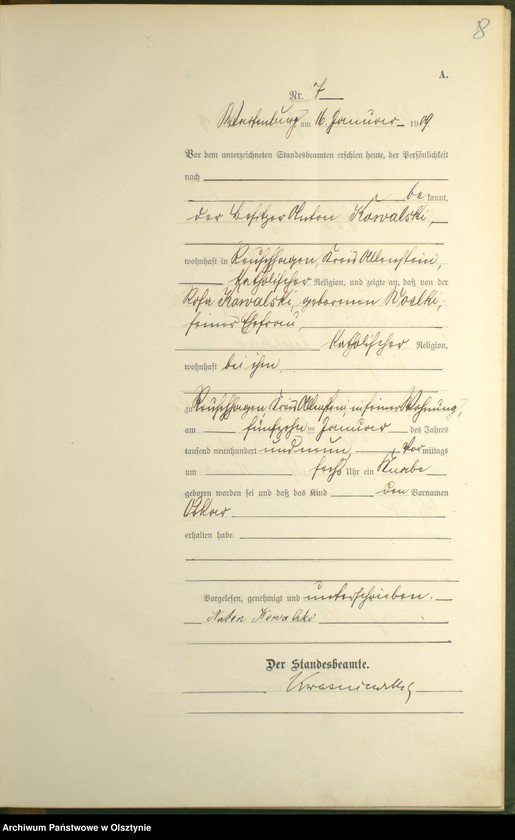 8
A.
Nr. 7
Wartenburg am 16. Januar 1909.
Vor dem unterzeichneten Standesbeamten erschien heute, der Persönlichkeit
nach
be kannt,
der Besitzer Anton Kowalski,
wohnhaft in Reuschhagen, Kreis Allenstein,
katholischer Religion, und zeigte an, daß von der
Rosa Kowalski, geborenen Woelki,
seiner Ehefrau,
katholischer Religion,
wohnhaft bei ihm,
zu Reuschhagen, Kreis Allenstein, in seiner Wohnung,
am fünfzehn ten Januar des Jahres
tausend neunhundert und neun, Vor mittags
um sechs Uhr ein Knabe
geboren worden sei und daß das Kind den Vornamen
Oskar
erhalten habe.
Vorgelesen, genehmigt und unterschrieben.
Anton Kowalski
Der Standesbeamte.
Archiwum Państwowe w Olsztynie